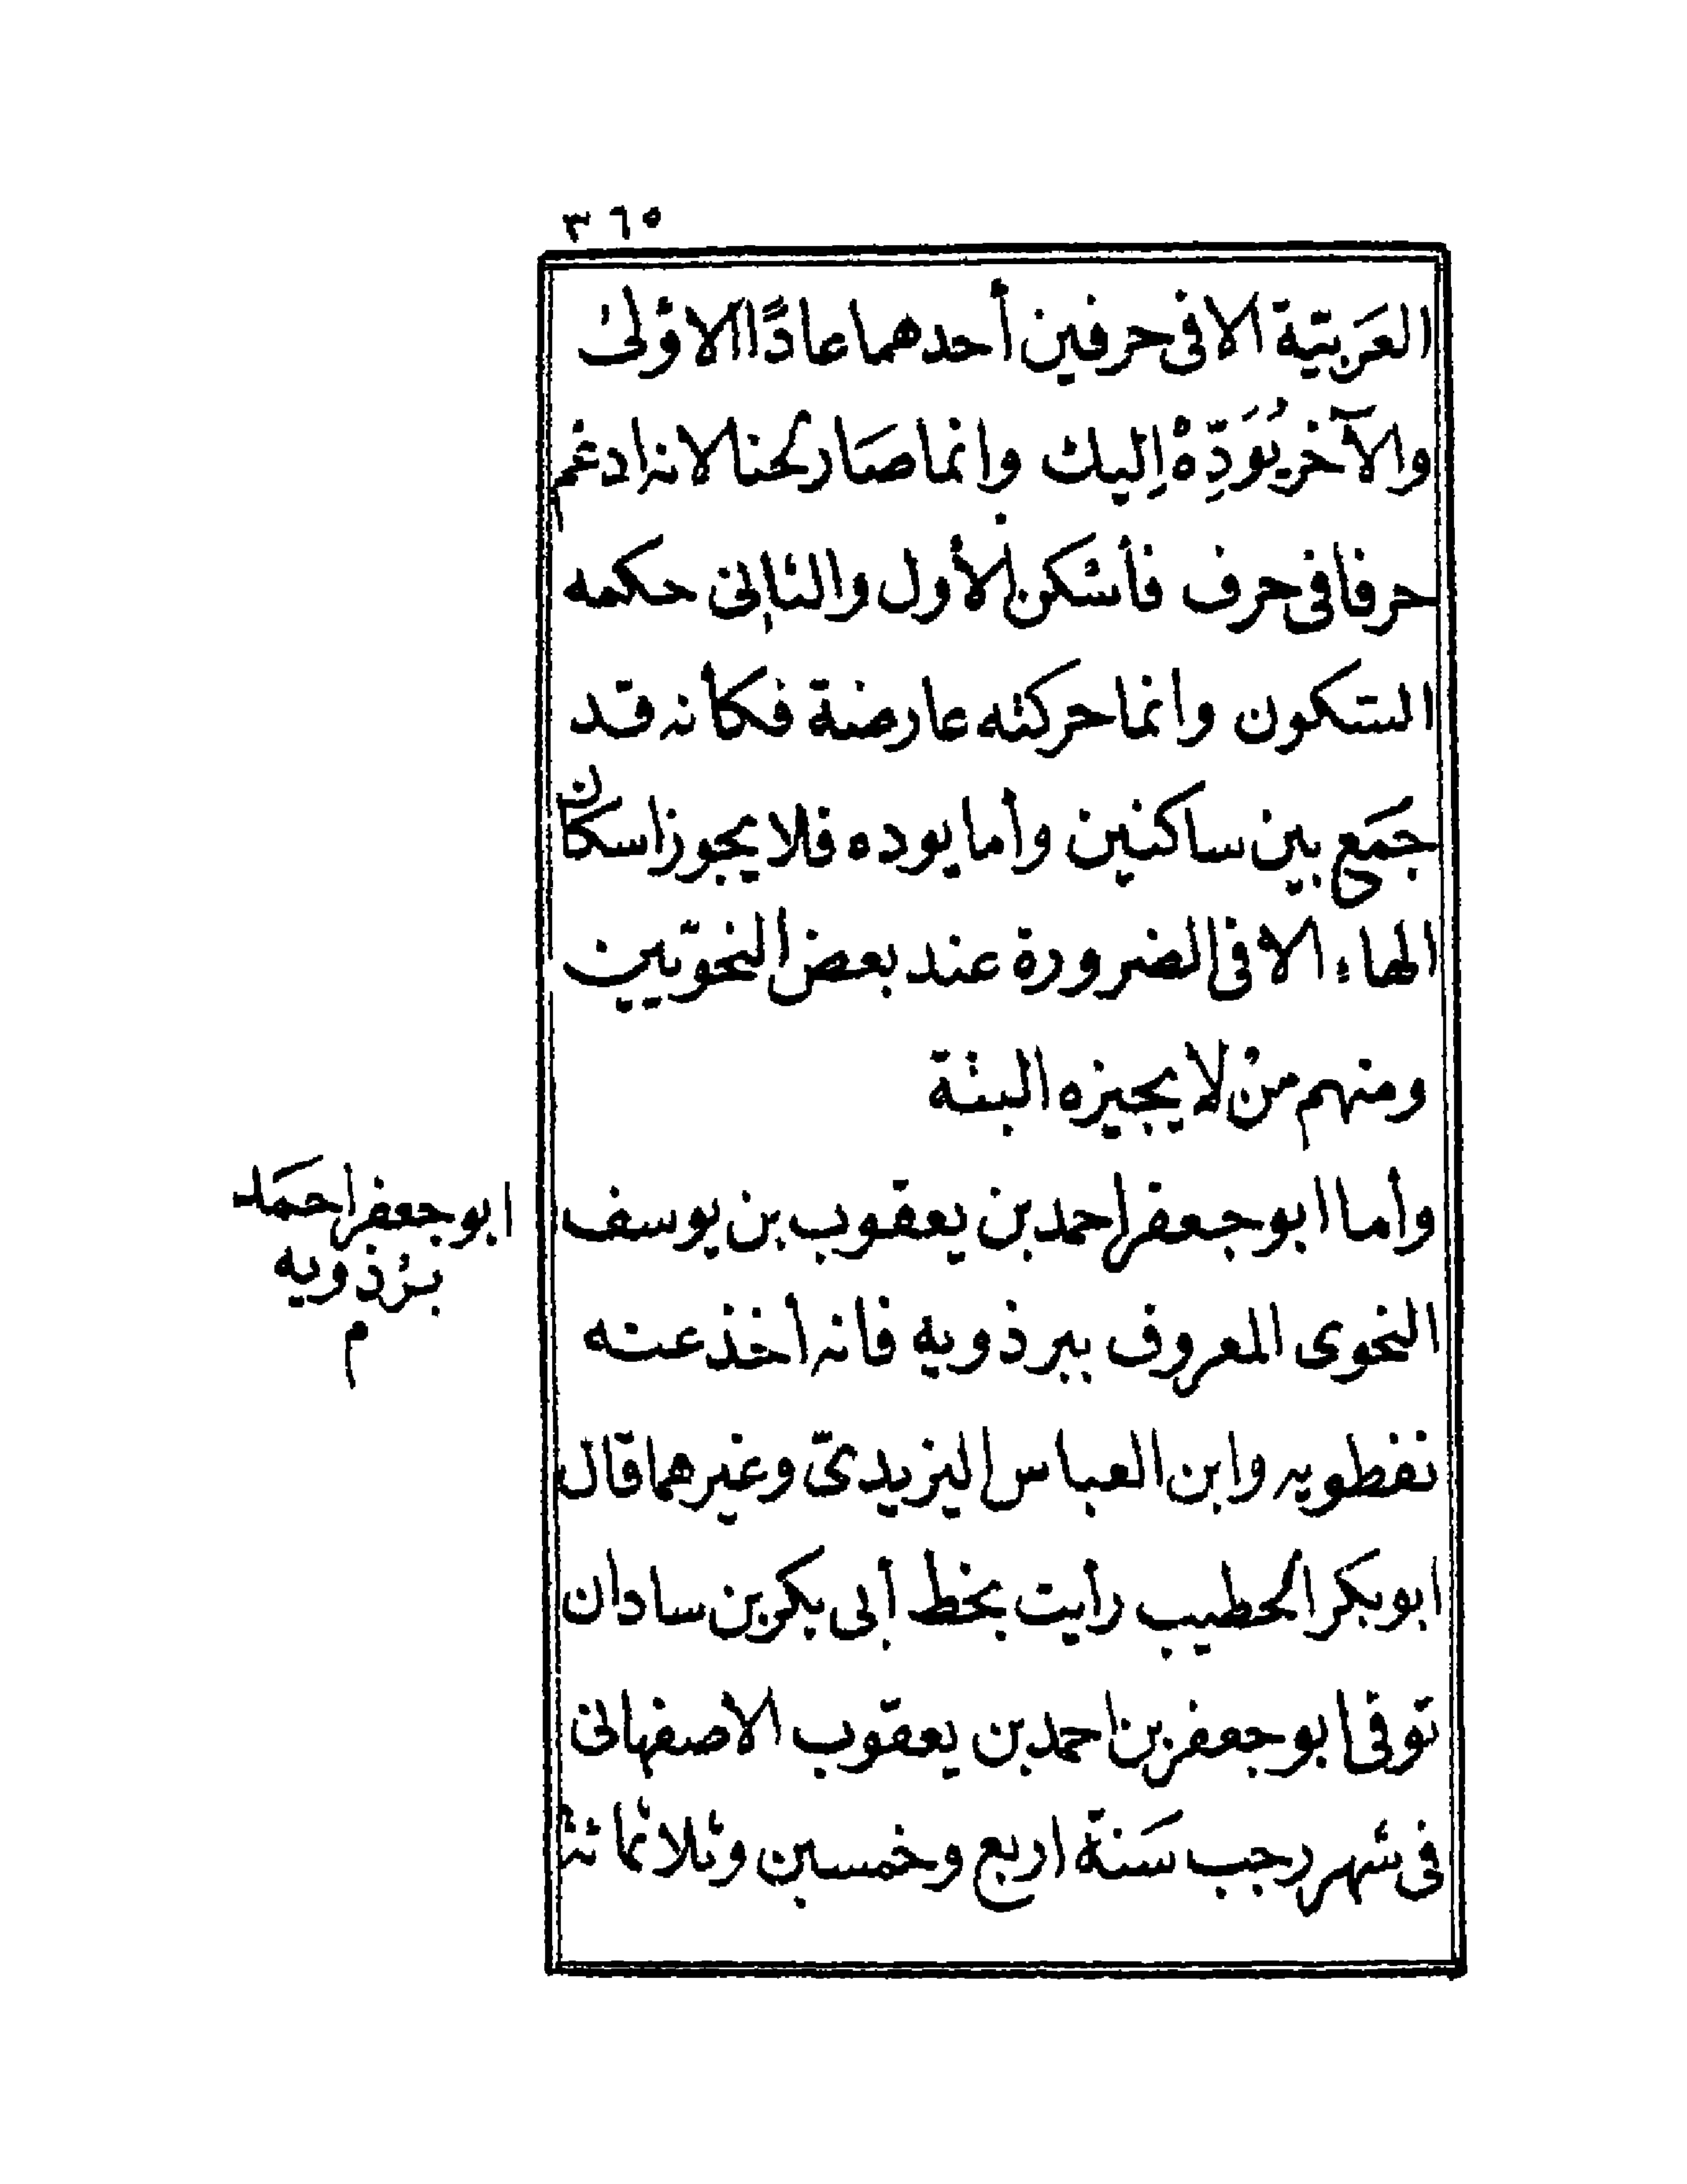 ٣٦٥
العَرَبيّة الا فى حرفين أحدهما عادًا الاؤلى
والآخر يُوَدِّهْ اِليك وانما صَار لحنا لانه ادغم
حرفا فى حرف فأسْكن الأول والثانى حكمه
السّكون وانما حركته عارضة فكأنه قد
جمَع بين ساكنين وأما يوده فلا يجوز اسكان
الهاء الا فى الضرورة عند بعض النحويّين
ومنهم منْ لا يجيزه البتة
وأما ابو جعفر احمد بن يعقوب بن يوسف
النحوى المعروف ببرذويه فانه أخذ عنه
نفطويه وابن العباس اليزيدىّ وغيرهما قال
ابو بكر الخطيب رأيت بخط أبى بكر بن سادان
توفى ابو جعفر بن احمد بن يعقوب الاصفهانى
فى شهر رجب سَنة اربع وخمسين وثلاثمائة
ابو جعفر احمَد
برْذويه
م